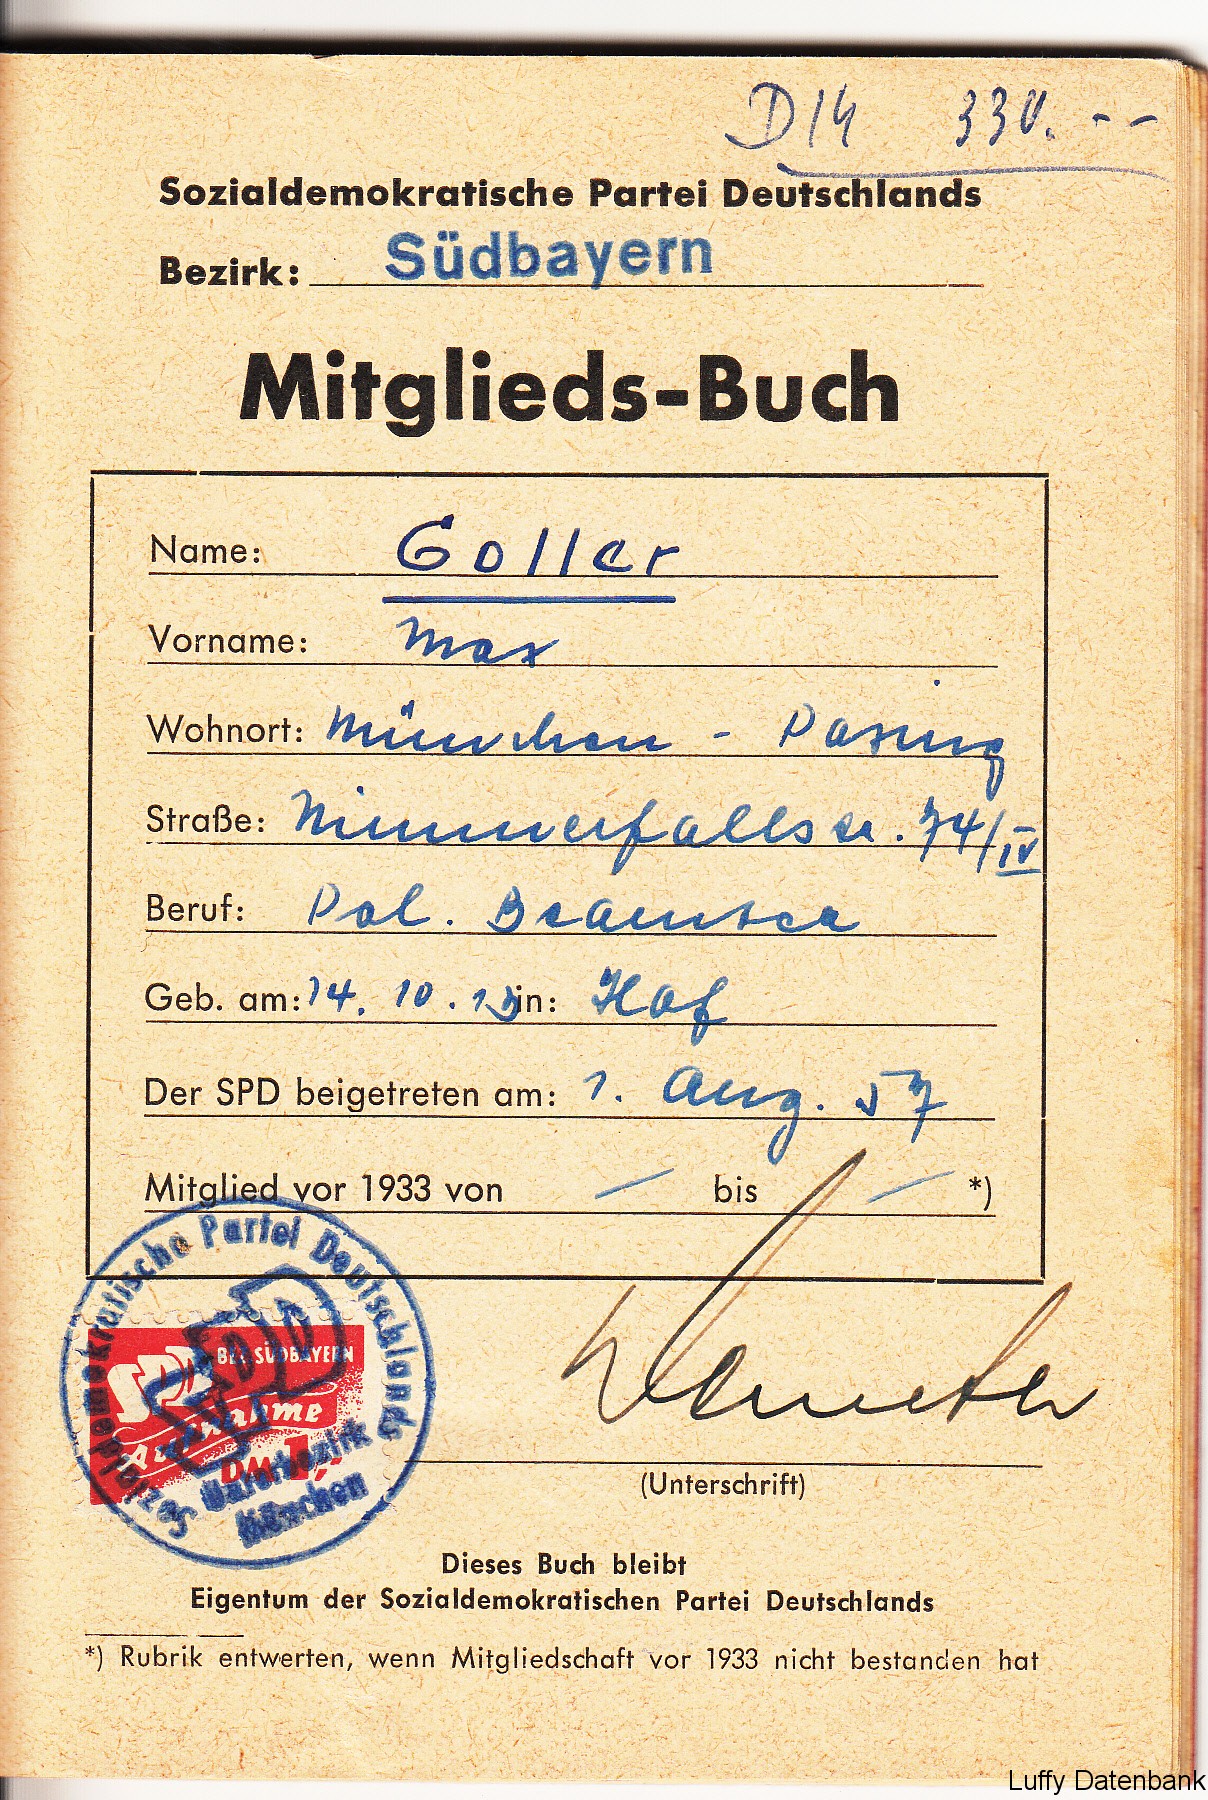 D14 330.--
Sozialdemokratische Partei Deutschlands
Bezirk: Südbayern
Mitglieds-Buch
Name: Goller
Vorname: Max
Wohnort: München - Pasing
Straße: Nimmerfallstr. 74/IV
Beruf: Pol. Beamter
Geb. am: 14. 10. in: Hof
Der SPD beigetreten am: 1. Aug. 57
Mitglied vor 1933 von — bis — *)
Sozialdemokratische Partei Deutschlands
SPD
Unterbezirk
München
SPD BEZ. SÜDBAYERN
Aufnahme
DM 1,-
(Unterschrift)
Dieses Buch bleibt
Eigentum der Sozialdemokratischen Partei Deutschlands
*) Rubrik entwerten, wenn Mitgliedschaft vor 1933 nicht bestanden hat
Luffy Datenbank